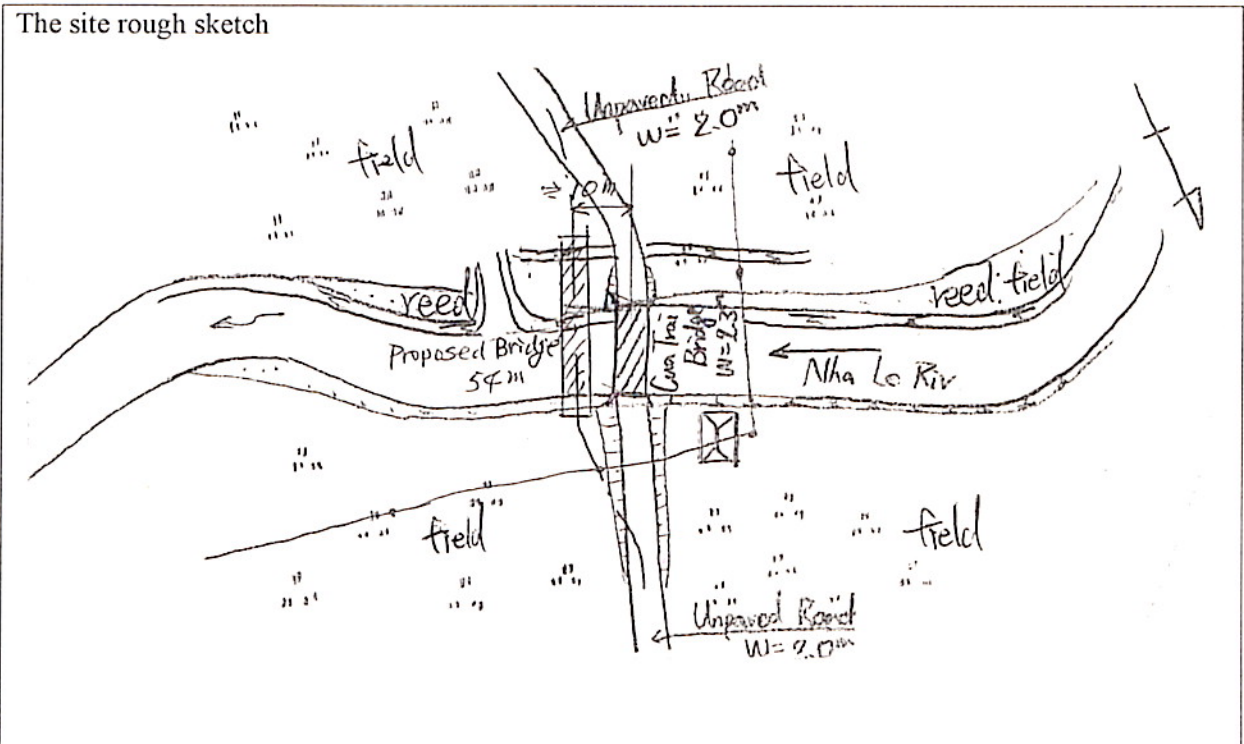 The site rough sketch
Unpaved Road
W= 2.0m
field
field
≒10m
reed
reed field
Proposed Bridge
54m
Bridge
W=2.3m
Nha Le Riv
field
field
Unpaved Road
W= 2.0m